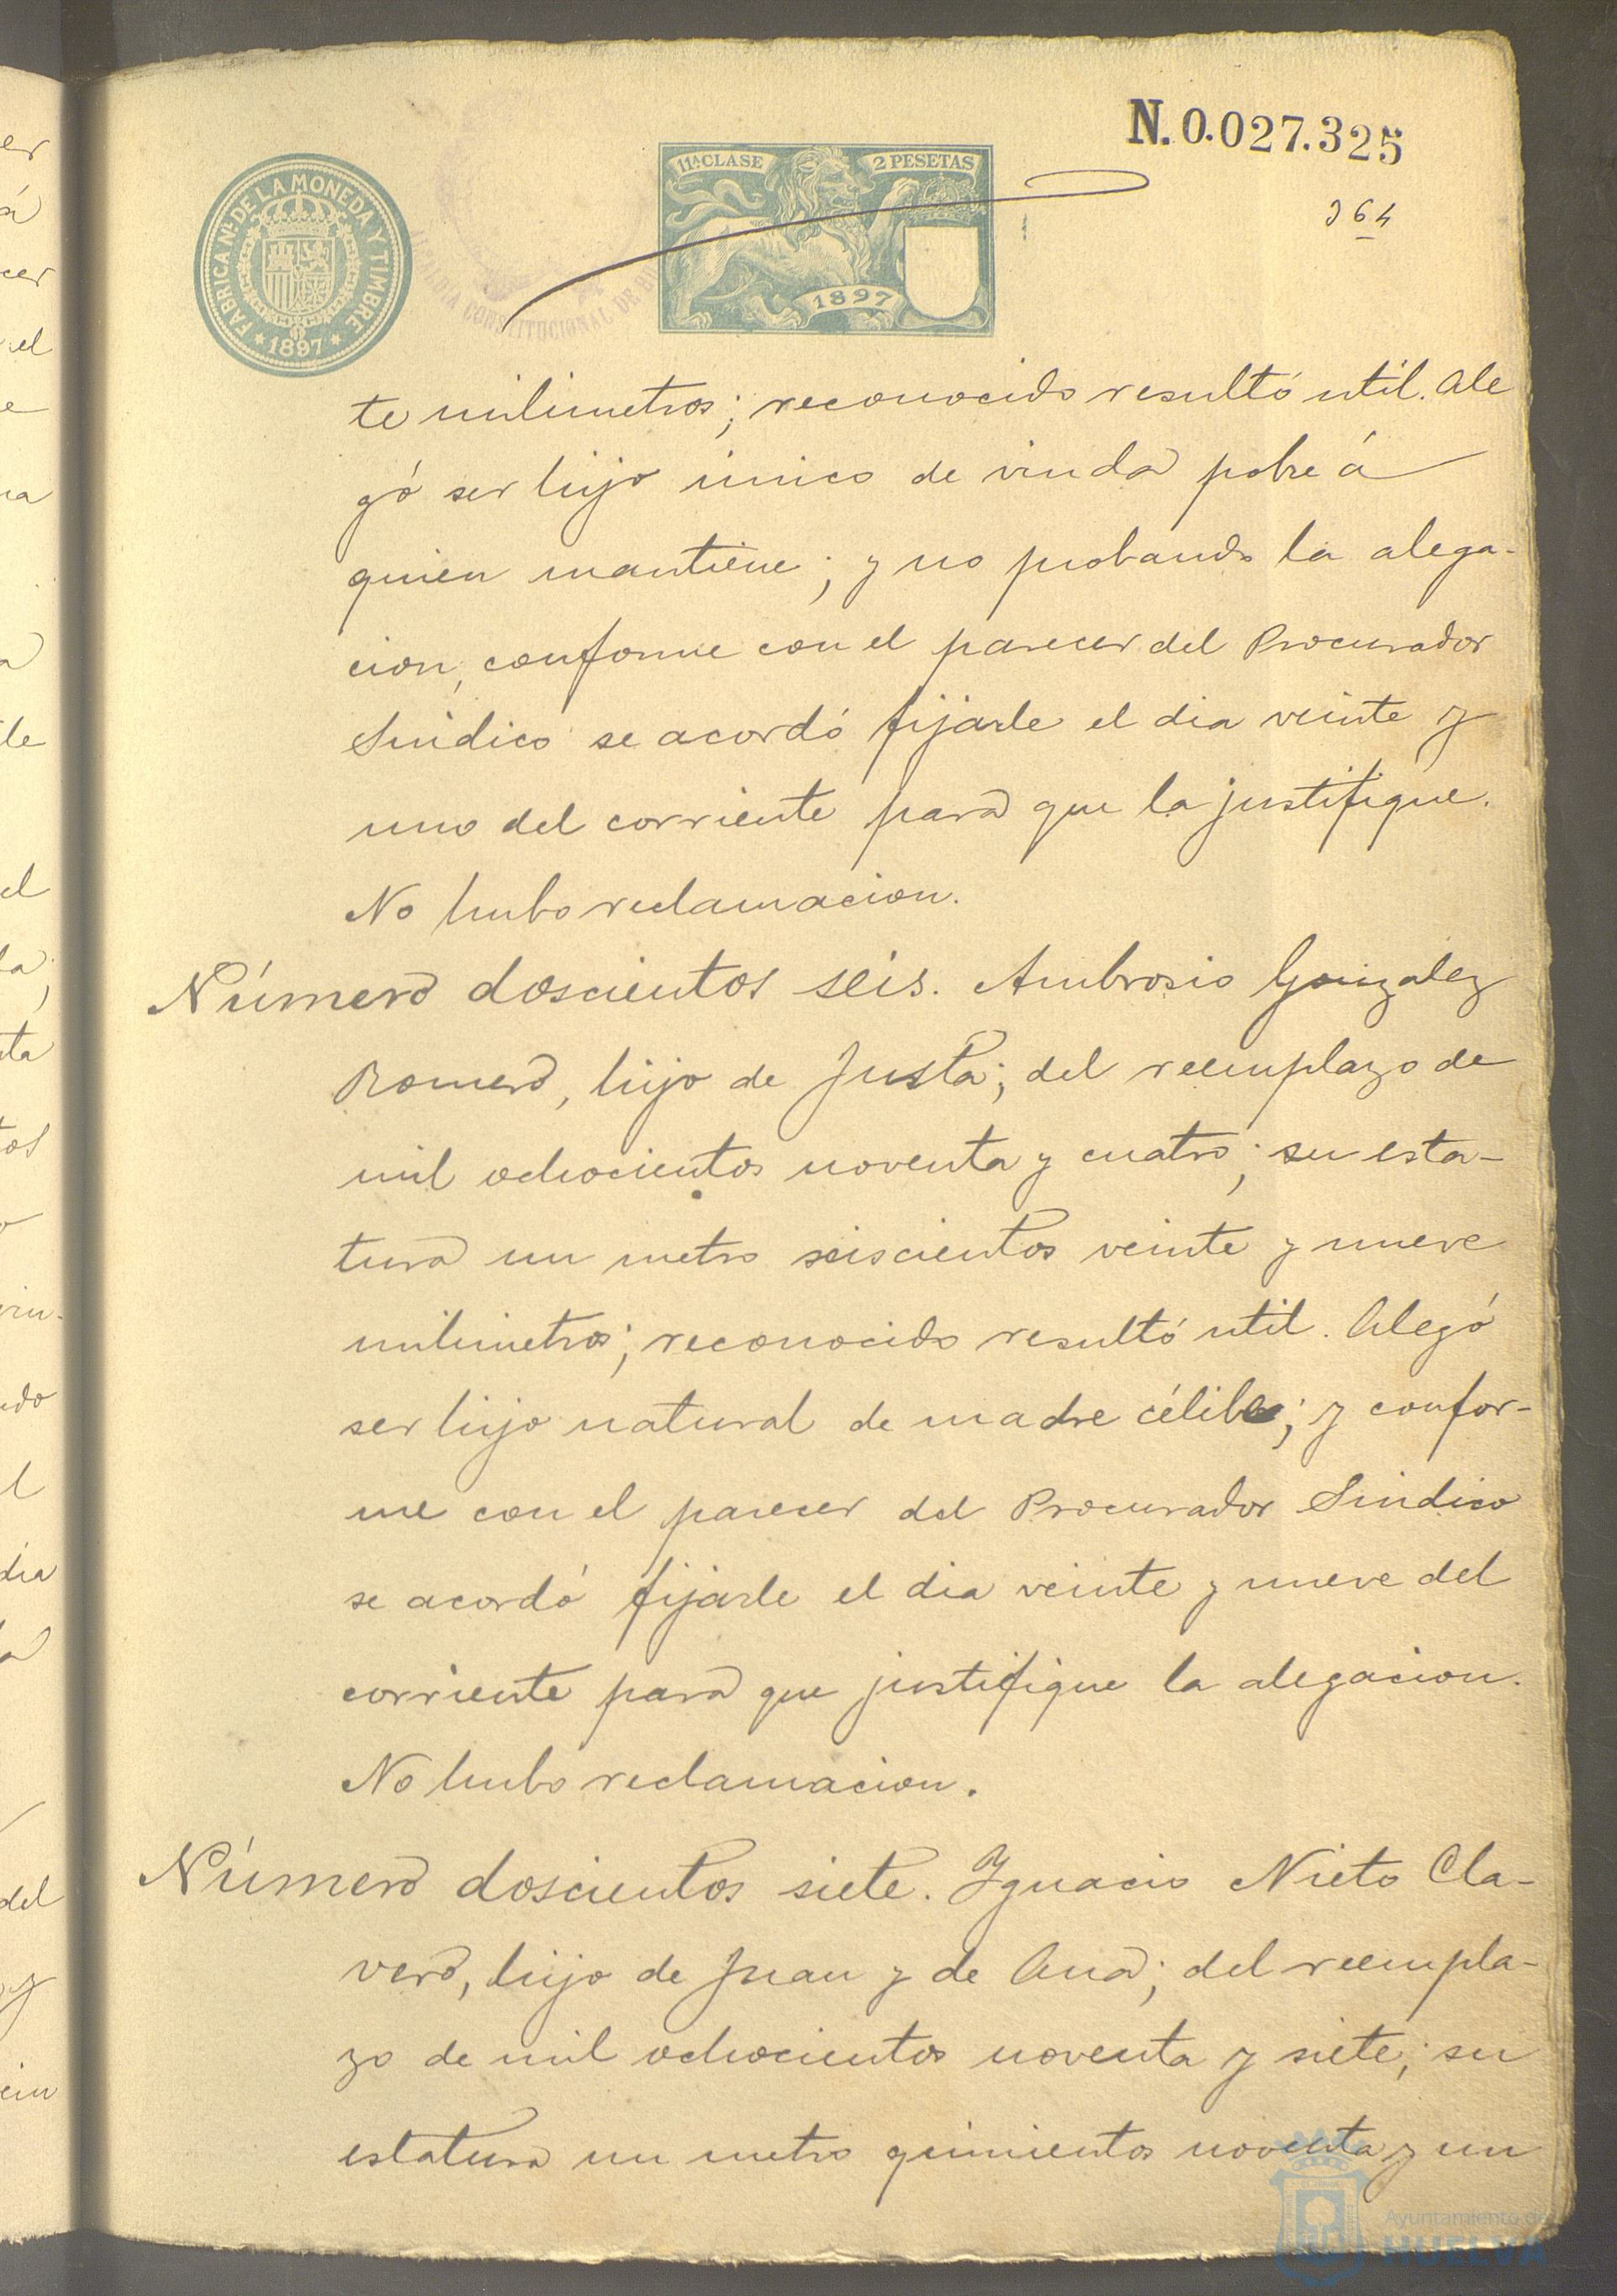 N. 0.027.325
364
FABRICA Nal DE LA MONEDA Y TIMBRE
* 1897 *
11ª CLASE
2 PESETAS
1897
CONSTITUCIONAL DE
te milimetros; reconocido resultó util. Ale
gó ser hijo único de viuda pobre á
quien mantiene; y no probando la alega-
cion, conforme con el parecer del Procurador
Sindico se acordó fijarle el dia veinte y
uno del corriente para que la justifique.
No hubo reclamacion.
Número doscientos seis. Ambrosio Gonzalez
Romero, hijo de Justa; del reemplazo de
mil ochocientos noventa y cuatro; su esta-
tura un metro seiscientos veinte y nueve
milimetros; reconocido resultó util. Alegó
ser hijo natural de madre célibe; y confor-
me con el parecer del Procurador Sindico
se acordó fijarle el dia veinte y nueve del
corriente para que justifique la alegacion.
No hubo reclamacion.
Número doscientos siete. Ygnacio Nieto Cla-
vero, hijo de Juan y de Ana; del reempla-
zo de mil ochocientos noventa y siete; su
estatura un metro quinientos noventa y un
Ayuntamiento de
HUELVA